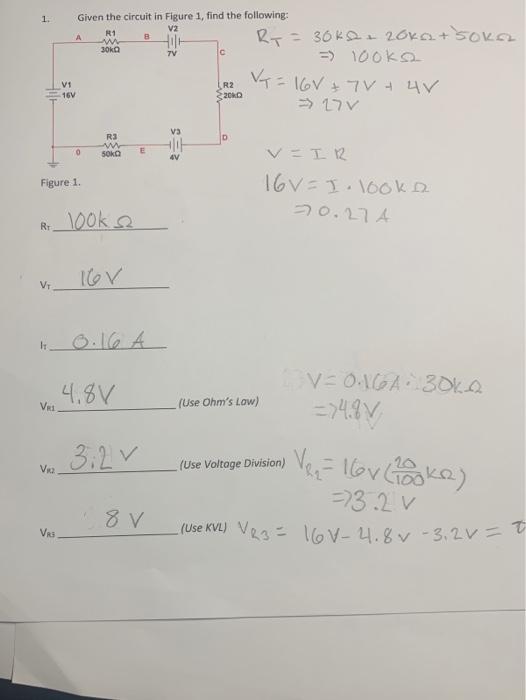 1. Given the circuit in Figure 1, find the following:
R1
V2
A
B
30kΩ
7V
C
V1
16V
R2
20kΩ
R3
V3
D
0
50kΩ
E
4V
Figure 1.
R_T = 30kΩ + 20kΩ + 50kΩ
=> 100kΩ
V_T = 16V + 7V + 4V
=> 27V
V = I R
16V = I · 100kΩ
=> 0.27A
R_T 100kΩ
V_T 16V
I_T 0.16 A
V_R1 4.8V (Use Ohm's Law) V = 0.16A · 30kΩ
=> 4.8V
V_R2 3.2V (Use Voltage Division) V_R2 = 16V (20/100 kΩ)
=> 3.2V
V_R3 8V (Use KVL) V_R3 = 16V - 4.8V - 3.2V =